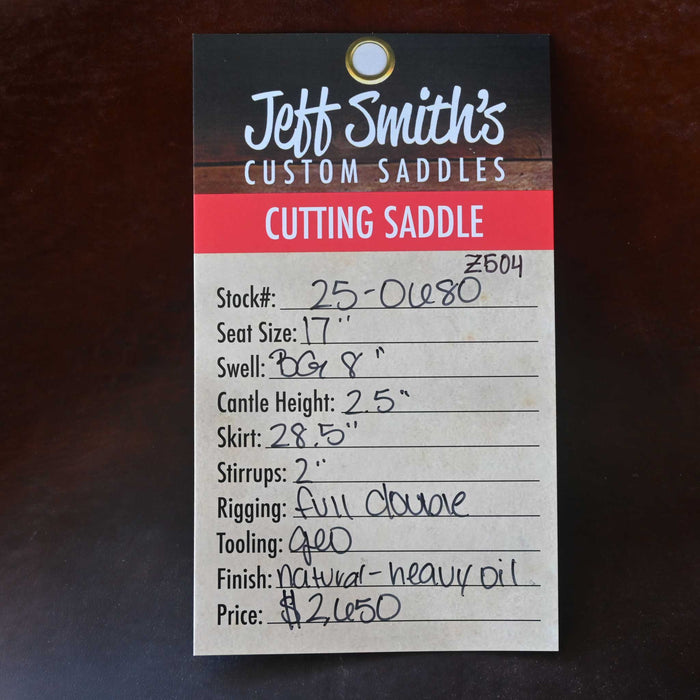 Jeff Smith's
CUSTOM SADDLES
CUTTING SADDLE
Z504
Stock#: 25-0680
Seat Size: 17"
Swell: BG 8"
Cantle Height: 2.5"
Skirt: 28.5"
Stirrups: 2"
Rigging: full double
Tooling: geo
Finish: natural-heavy oil
Price: $2,650